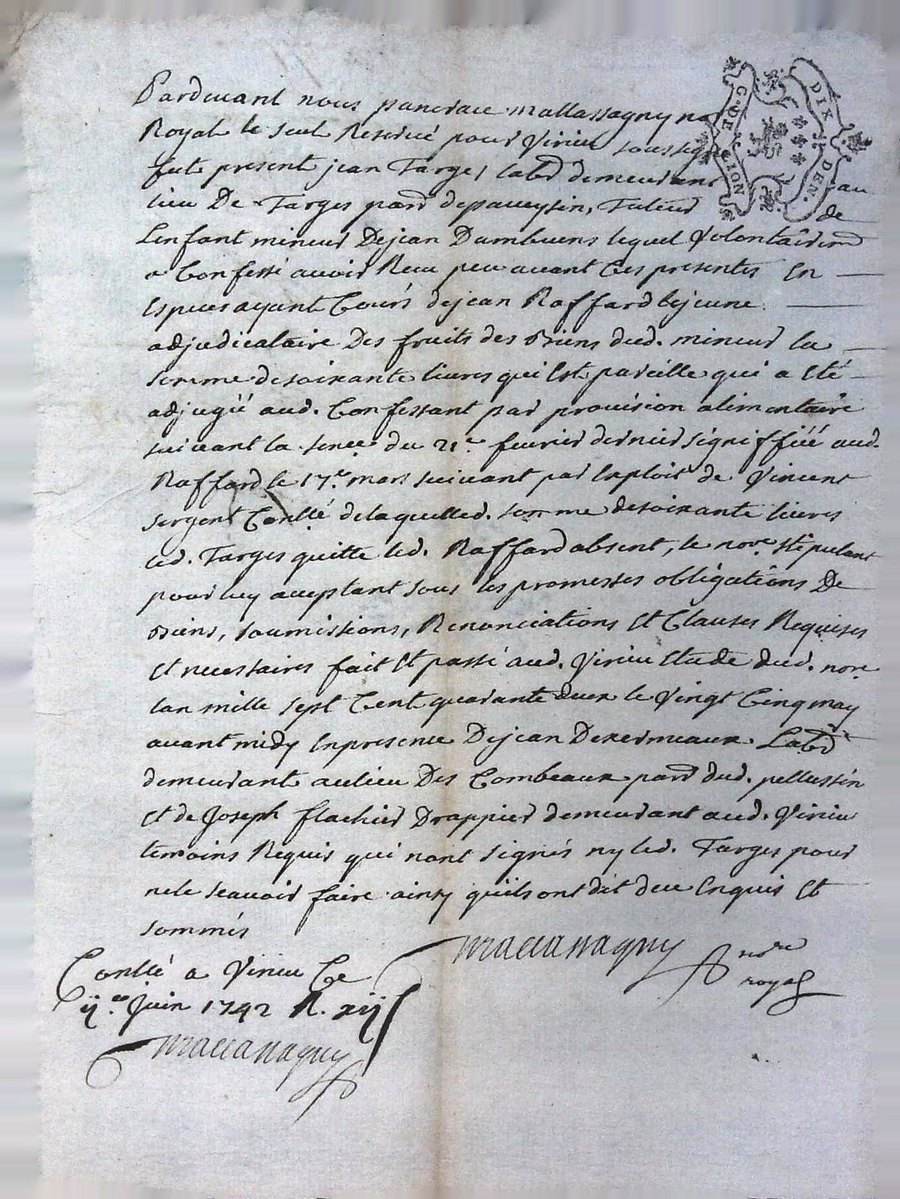 Pardevant nous pancrace mallassagny no
Royal le seul Reservé pour Virieu soussig
fut present jean Targes labr demeurant au
lieu De Targes parr de paveysin, Tuteur de
Lenfant mineur De jean Dambuens lequel Volontairemt
a Confessé avoir Receu peu avant Ces presentes En
Especes ayant Cours de jean Raffard le jeune
adjudicataire Des fruits des Biens dud. mineur la
somme de soixante livres qui Est pareille qui a Eté
adjugée aud. Confessant par provision alimentaire
suivant la sence du 21e fevrier dernier signiffiée aud.
Raffard le 17e mars suivant par Exploit de Vincent
sergent Conllé de laquelle d. somme de soixante livres
led. Targes quitte led. Raffard absent, le nore stipulant
pour luy acceptant sous les promesses obligations De
Biens, soumissions, Renonciations Et Clauses Requises
Et necessaires fait Et passé aud. Virieu Etude dud. nore
Lan mille sept Cent quarante deux le Vingt Cinq may
avant midy En presence De jean Dexermeaux Labr
demeurant au lieu Des Combeaux parr dud. pellussin
Et de Joseph flachier Drappier demeurant aud. Virieu
temoins Requis qui nont signés ny led. Targes pour
ne le scavoir faire ainsy quils ont dit deu Enquis Et
sommés
mallassagny nore
royal
Conllé a Virieu Ce
ije Juin 1742 R. xijs
mallassagny
G. DE LION
DIX DEN.